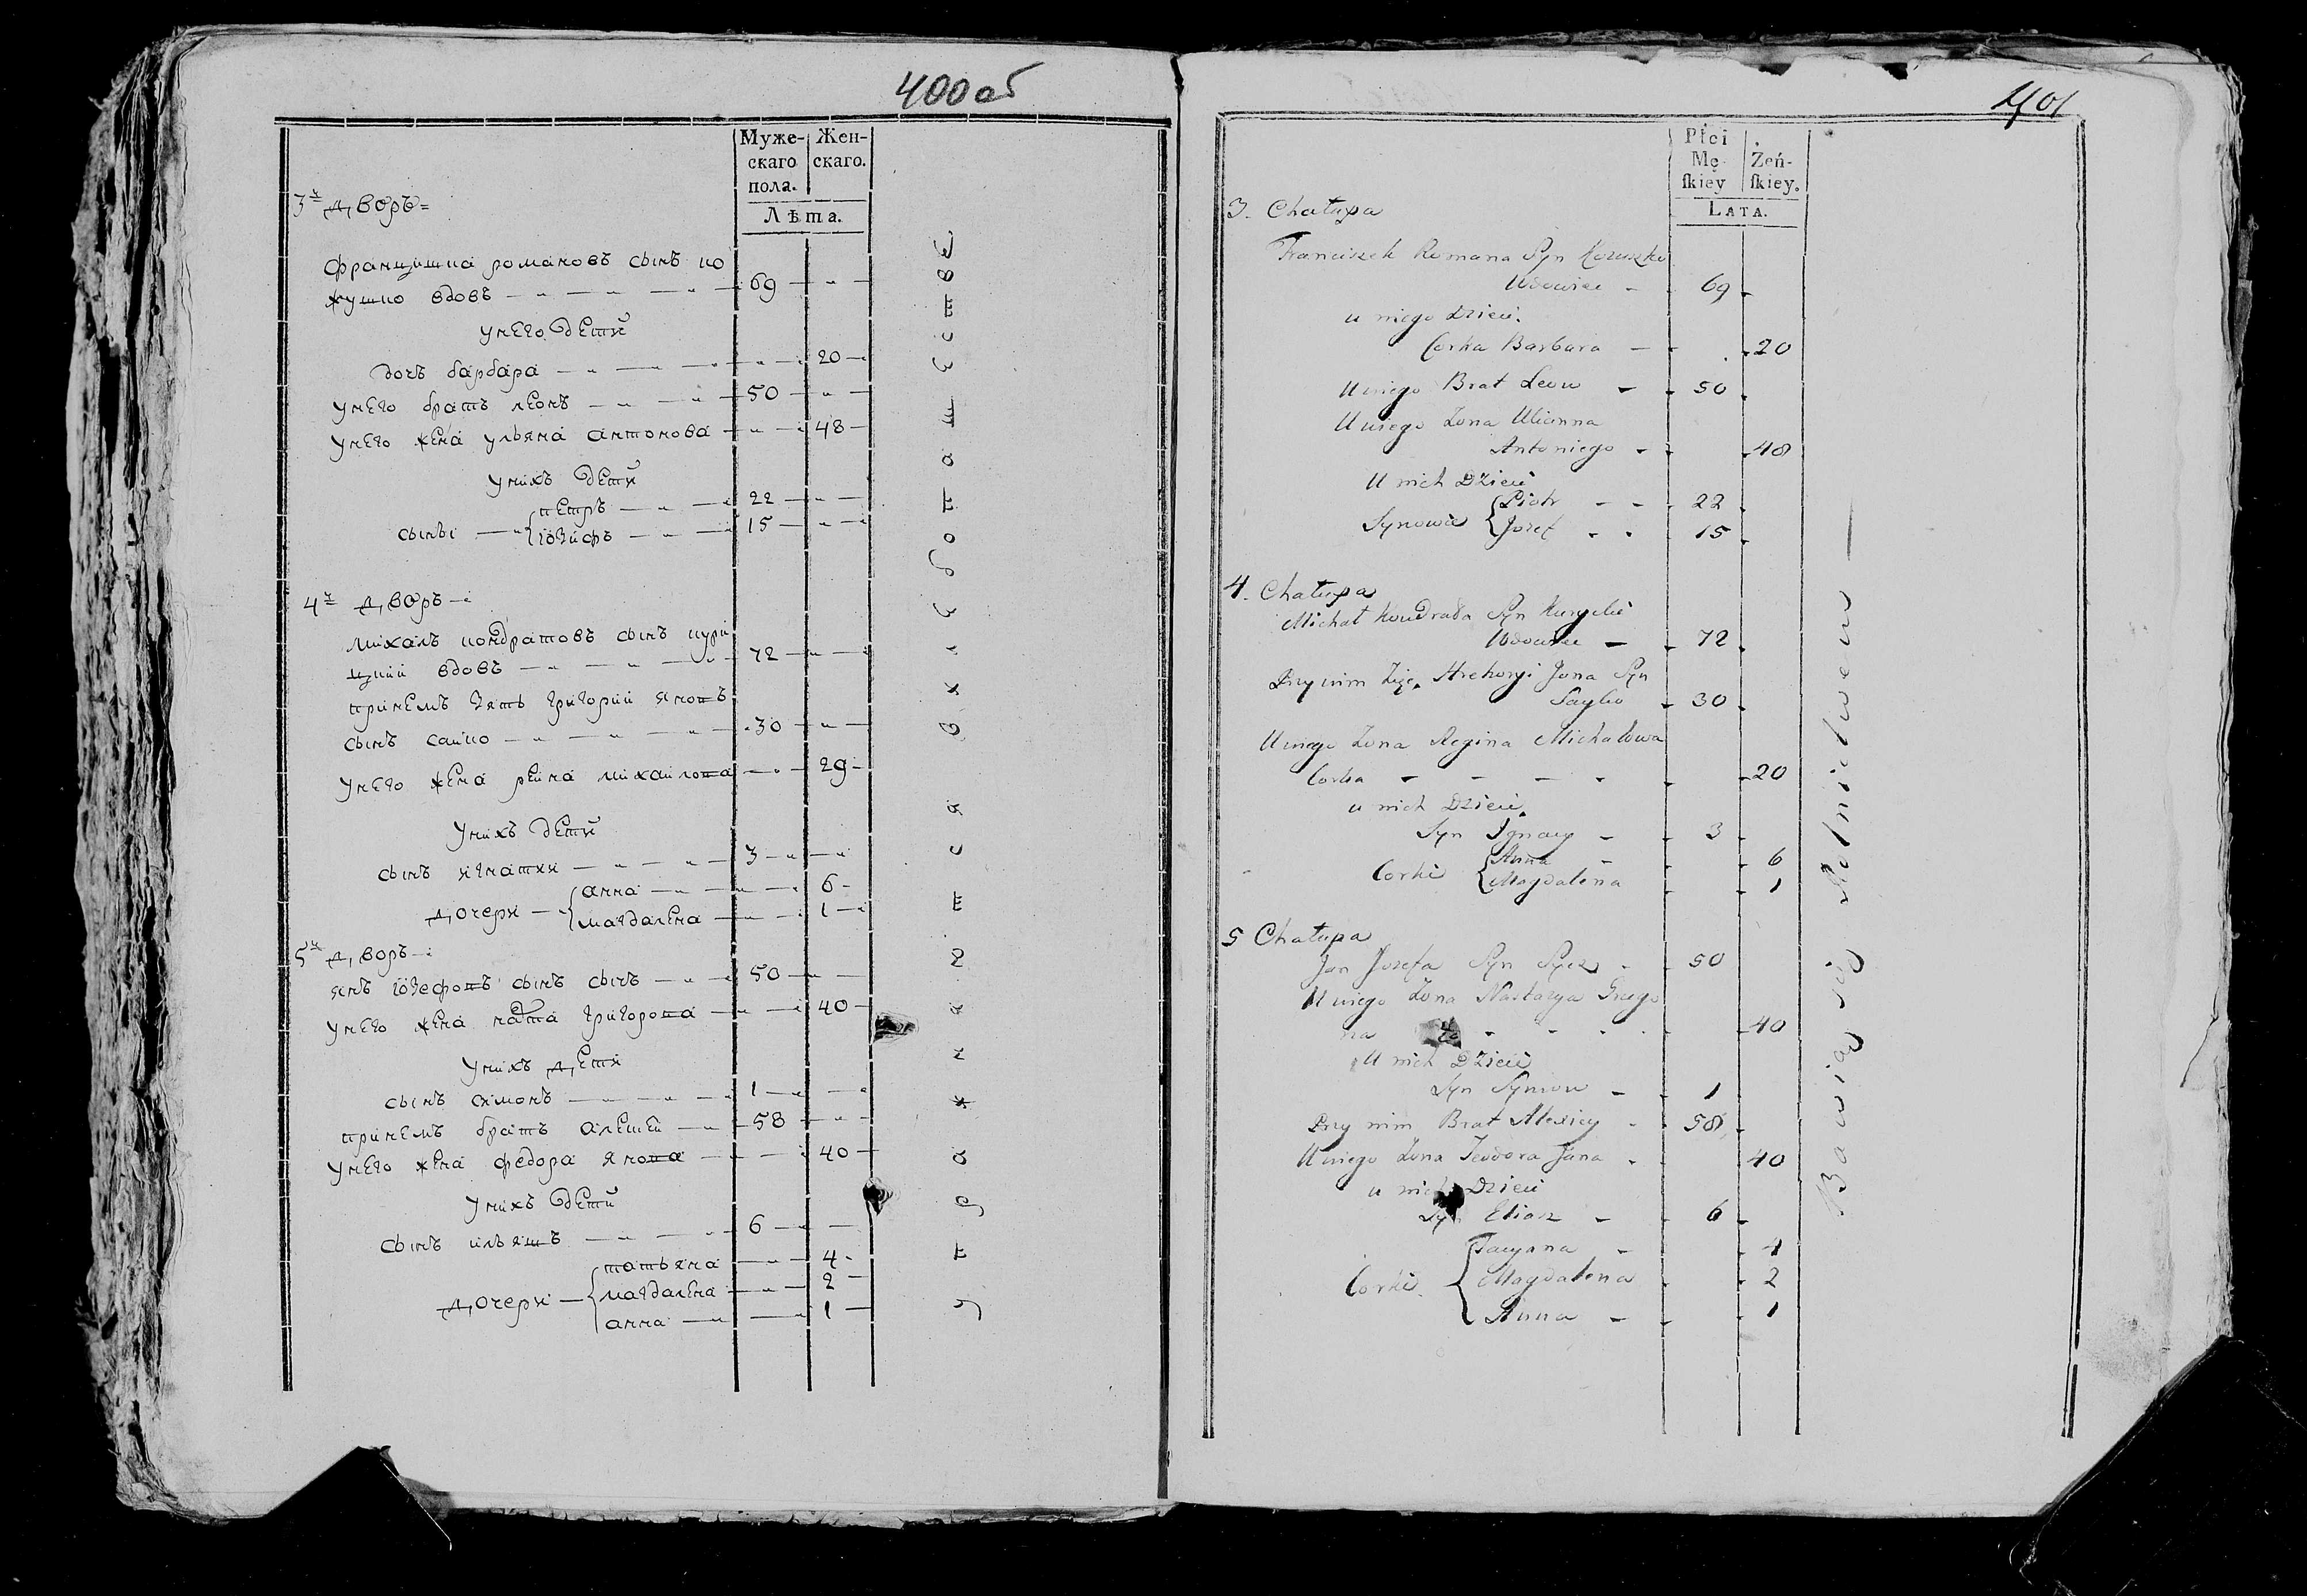 400 об
Муже-
скаго
пола.
Жен-
скаго.
Лѣта.
3й дворъ
францишка романовъ сынъ ко
жушко вдовъ 69
у него дети
дочъ барбара 20
у него братъ леонъ 50
у него жена ульяна антонова 48
у нихъ дети
сыны { петръ 22
iозифъ 15
4й дворъ
михалъ кондратовъ сынъ кури
цкий вдовъ 72
при немъ зять григорий яновъ
сынъ сайко 30
у него жена рейна михайлова 29
у нихъ дети
сынъ игнатий 3
дочери { анна 6
магдалена 1
5й дворъ
янъ iозефовъ сынъ сычъ 50
у него жена наста григорова 40
у нихъ дети
сынъ симонъ 1
при немъ братъ алешей 58
у него жена федора янова 40
у нихъ дети
сынъ ильяшъ 6
дочери { татьяна 4
магдалена 2
анна 1
401
Płci
Mę-
skiey
Żeń-
skiey.
LATA.
3. Chałupa
Franciszek Romana Syn Kozuszko
Wdowiec 69
u niego Dzieci.
Corka Barbara 20
U niego Brat Leon 50
U niego Zona Ulianna
Antoniego 48
U nich Dzieci
Synowie { Piotr 22
Jozef 15
4. Chałupa
Michał Kondrada Syn Kurycki
Wdowiec 72
Przy nim Zięć Hrehory Jona Syn
Sayko 30
U niego Zona Regina Michałowa
Corka 20
u nich Dzieci
Syn Ignacy 3
Corki { Anna 6
Magdalena 1
5 Chałupa
Jan Jozefa Syn Sycz 50
U niego Zona Nastazya Grego
na 40
U nich Dzieci
Syn Symon 1
Przy nim Brat Alexiey 58
U niego Zona Teodora Jana 40
u nich Dzieci
Syn Eliasz 6
Corki { Tacyana 4
Magdalena 2
Anna 1
Bawią się Rolnictwem